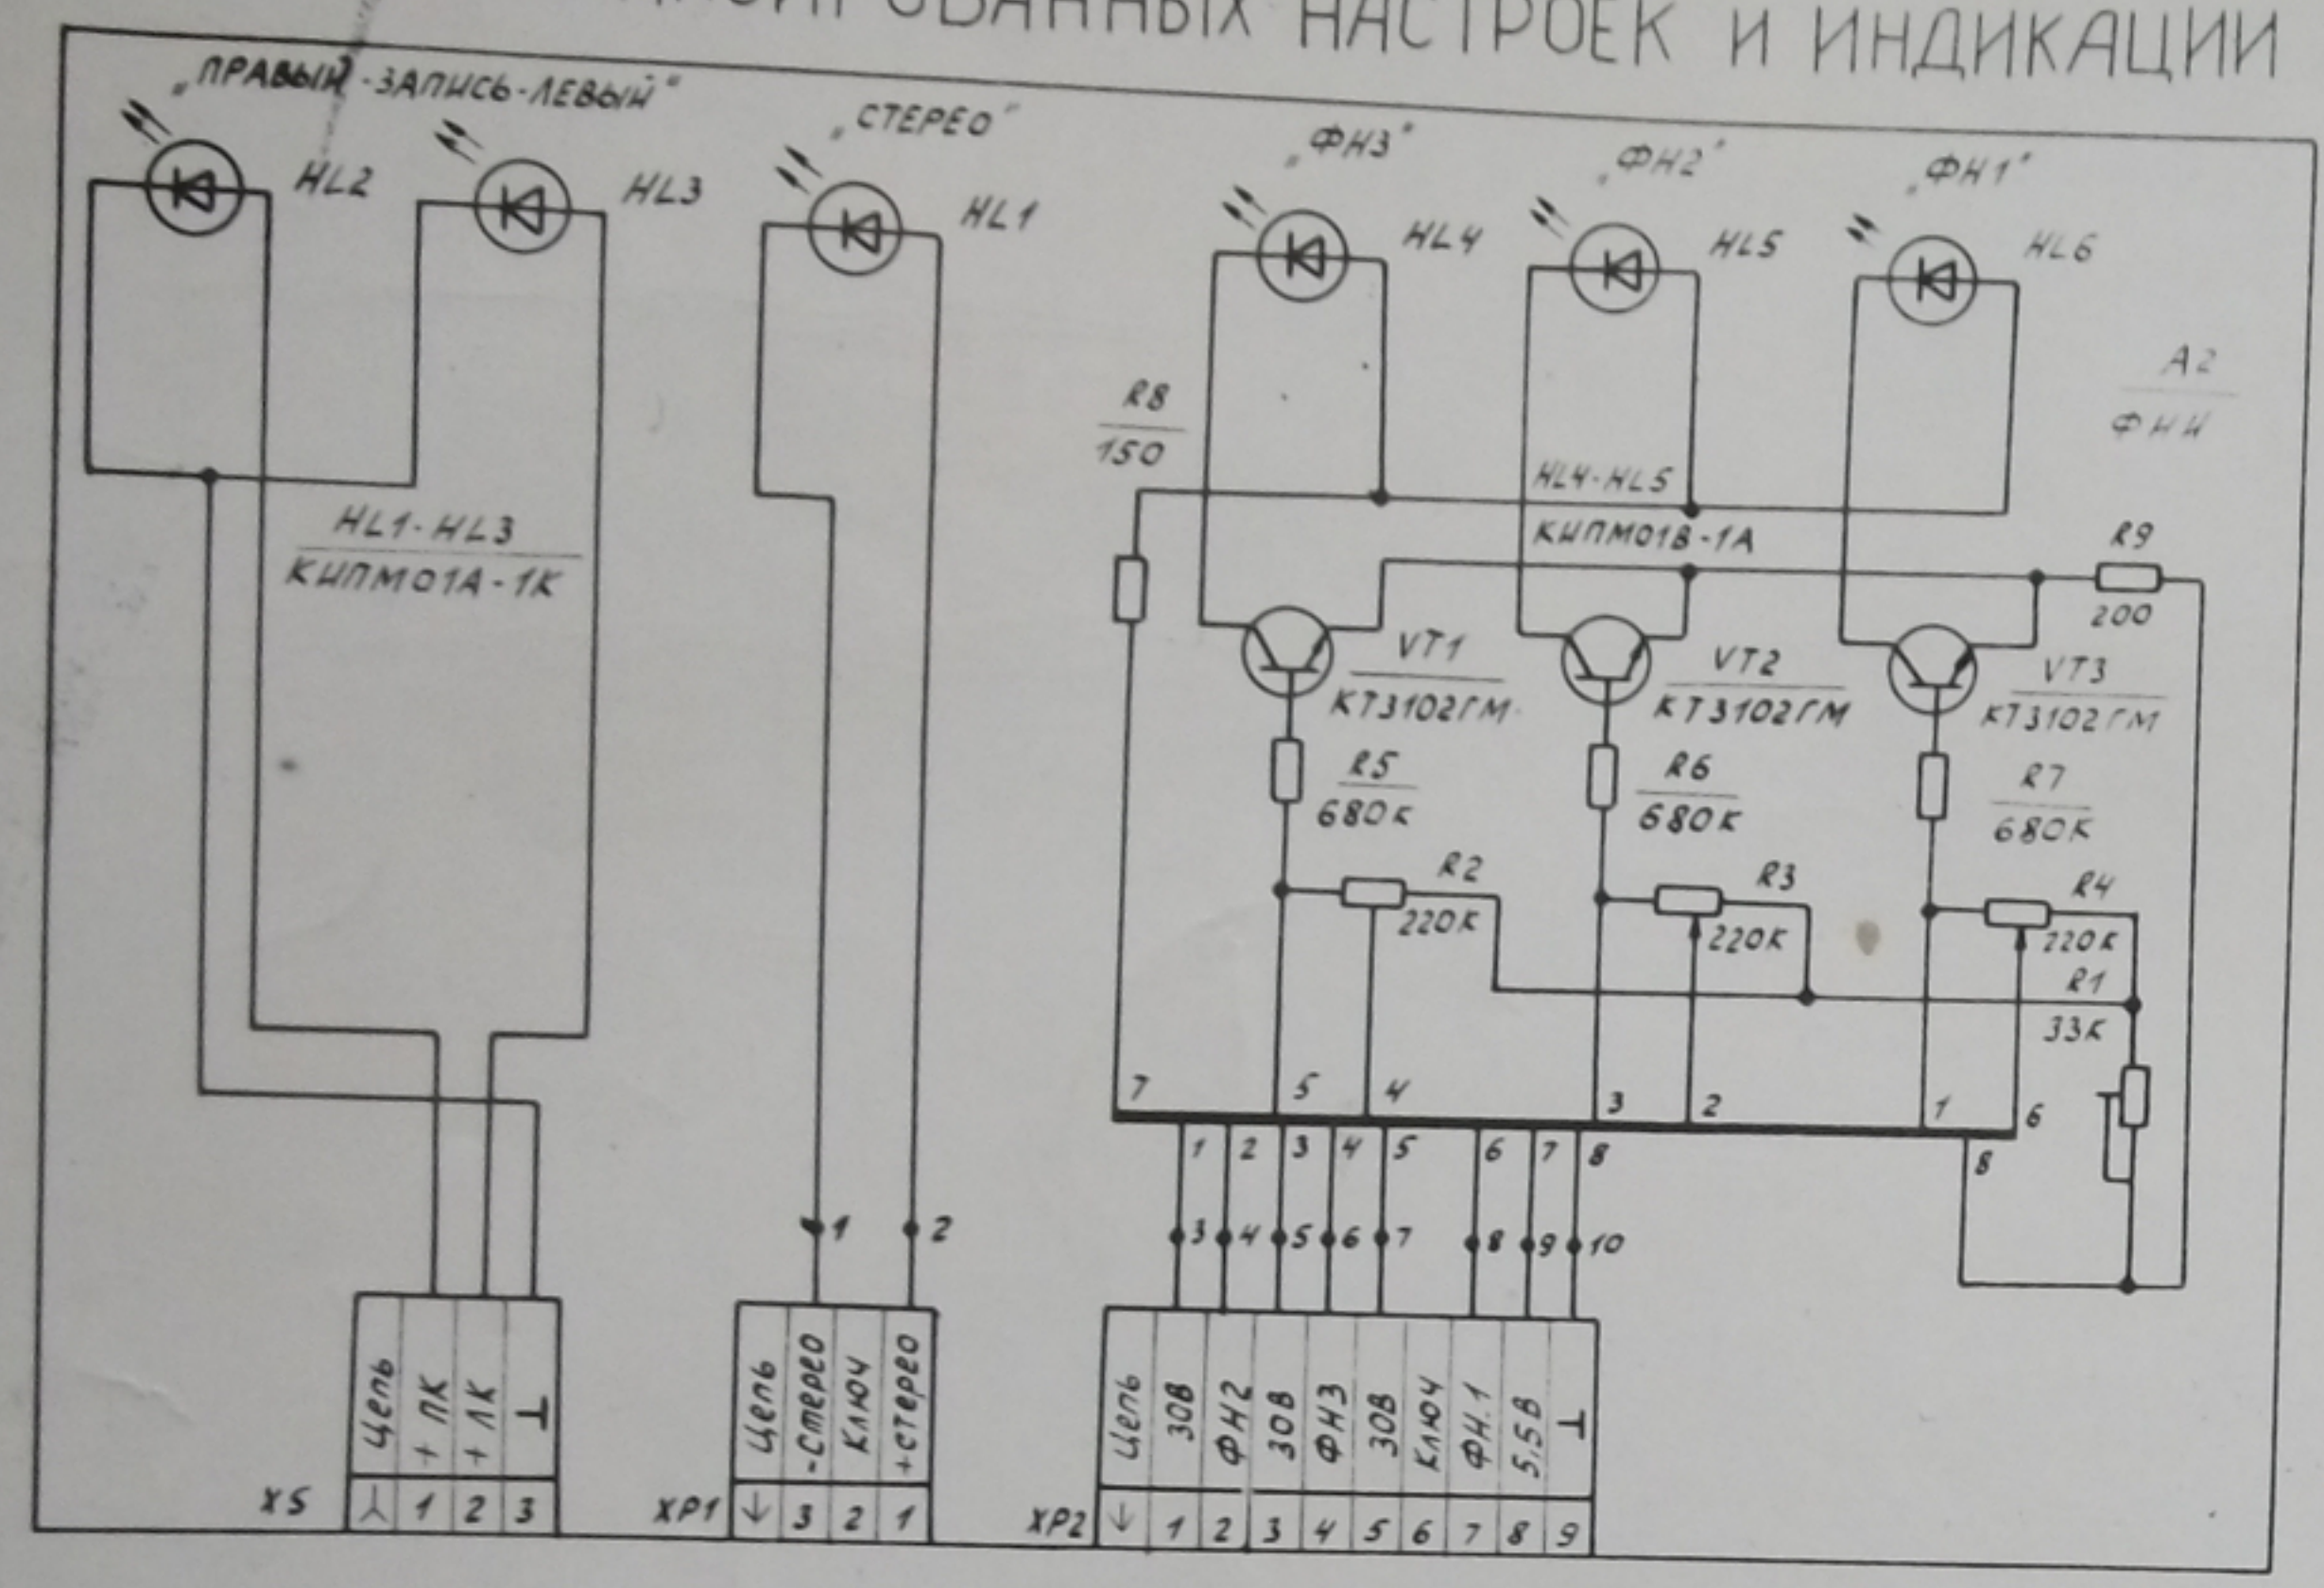 НАСТРОЕК И ИНДИКАЦИИ
„ПРАВЫЙ-ЗАПИСЬ-ЛЕВЫЙ"
„СТЕРЕО"
„ФН3"
„ФН2"
„ФН1"
HL2
HL3
HL1
HL4
HL5
HL6
A2
ФНИ
R8
150
HL4-HL5
КИПМ01В-1А
HL1-HL3
КИПМ01А-1К
R9
200
VT1
КТ3102ГМ
VT2
КТ3102ГМ
VT3
КТ3102ГМ
R5
680К
R6
680К
R7
680К
R2
220К
R3
220К
R4
220К
R1
33К
7 5 4 3 2 1 6
1 2 3 4 5 6 7 8 8
1 2
3 4 5 6 7 8 9 10
Цепь
+ ПК
+ ЛК
⊥
XS 1 2 3
Цепь
-Стерео
Ключ
+стерео
XP1 ↓ 3 2 1
Цепь
30В
ФН2
30В
ФН3
30В
Ключ
ФН.1
5,5В
⊥
XP2 ↓ 1 2 3 4 5 6 7 8 9